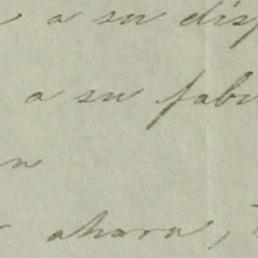 a su disp
a su fabr
n
ahora,